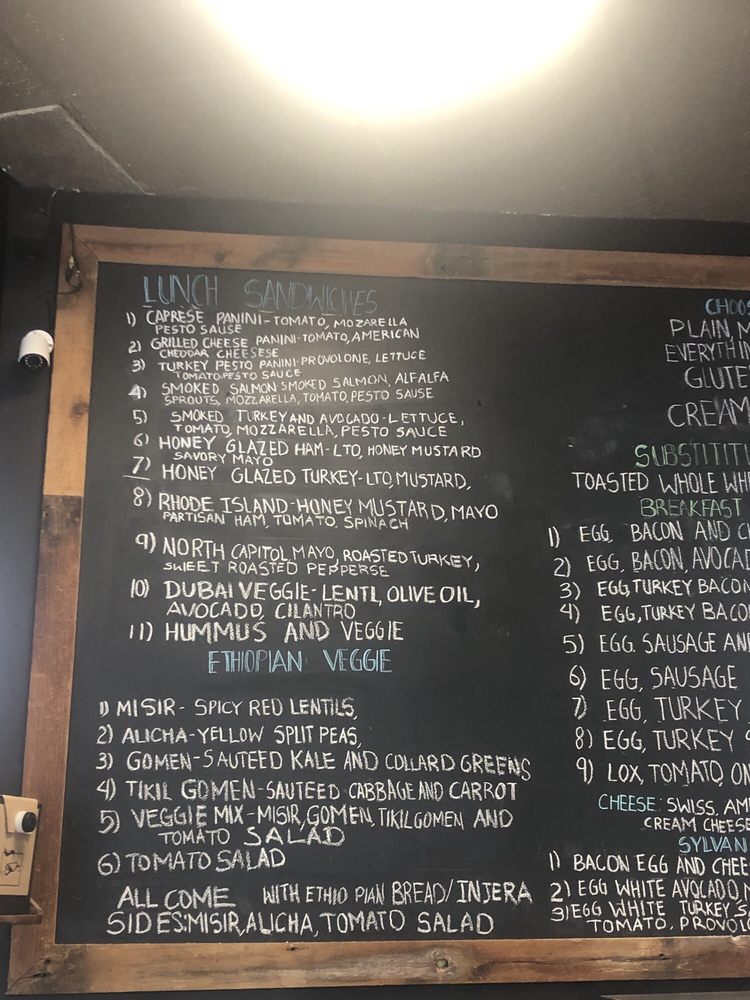 LUNCH SANDWICHES
1) CAPRESE PANINI-TOMATO, MOZARELLA
PESTO SAUSE
2) GRILLED CHEESE PANINI-TOMATO, AMERICAN
CHEDDAR CHEESESE
3) TURKEY PESTO PANINI-PROVOLONE, LETTUCE
TOMATO PESTO SAUCE
4) SMOKED SALMON SMOKED SALMON, ALFALFA
SPROUTS, MOZZARELLA, TOMATO, PESTO SAUSE
5) SMOKED TURKEY AND AVOCADO-LETTUCE,
TOMATO, MOZZARELLA, PESTO SAUCE
6) HONEY GLAZED HAM-LTO, HONEY MUSTARD
SAVORY MAYO
7) HONEY GLAZED TURKEY-LTO, MUSTARD,
8) RHODE ISLAND-HONEY MUSTARD, MAYO
PARTISAN HAM, TOMATO, SPINACH
9) NORTH CAPITOL MAYO, ROASTED TURKEY,
SWEET ROASTED PEPPERSE
10) DUBAI VEGGIE-LENTL, OLIVE OIL,
AVOCADO, CILANTRO
11) HUMMUS AND VEGGIE
ETHIOPIAN VEGGIE
1) MISIR- SPICY RED LENTILS,
2) ALICHA-YELLOW SPLIT PEAS,
3) GOMEN-SAUTEED KALE AND COLLARD GREENS
4) TIKIL GOMEN-SAUTEED CABBAGE AND CARROT
5) VEGGIE MIX-MISIR, GOMEN, TIKIL GOMEN AND
TOMATO SALAD
6) TOMATO SALAD
ALL COME WITH ETHIO PIAN BREAD/INJERA
SIDES:MISIR,ALICHA, TOMATO SALAD
CHOOS
PLAIN,
EVERYTHIN
GLUTE
CREAM
SUBSTITU
TOASTED WHOLE WH
BREAKFAST
1) EGG, BACON AND CH
2) EGG, BACON, AVOCAD
3) EGG, TURKEY BACON
4) EGG, TURKEY BACO
5) EGG SAUSAGE AN
6) EGG, SAUSAGE
7) EGG, TURKEY
8) EGG, TURKEY
9) LOX, TOMATO, ON
CHEESE: SWISS, AM
CREAM CHEESE
SYLVAN
1) BACON EGG AND CHEE
2) EGG WHITE AVOCADO,
3) EGG WHITE TURKEY S
TOMATO, PROVOLO